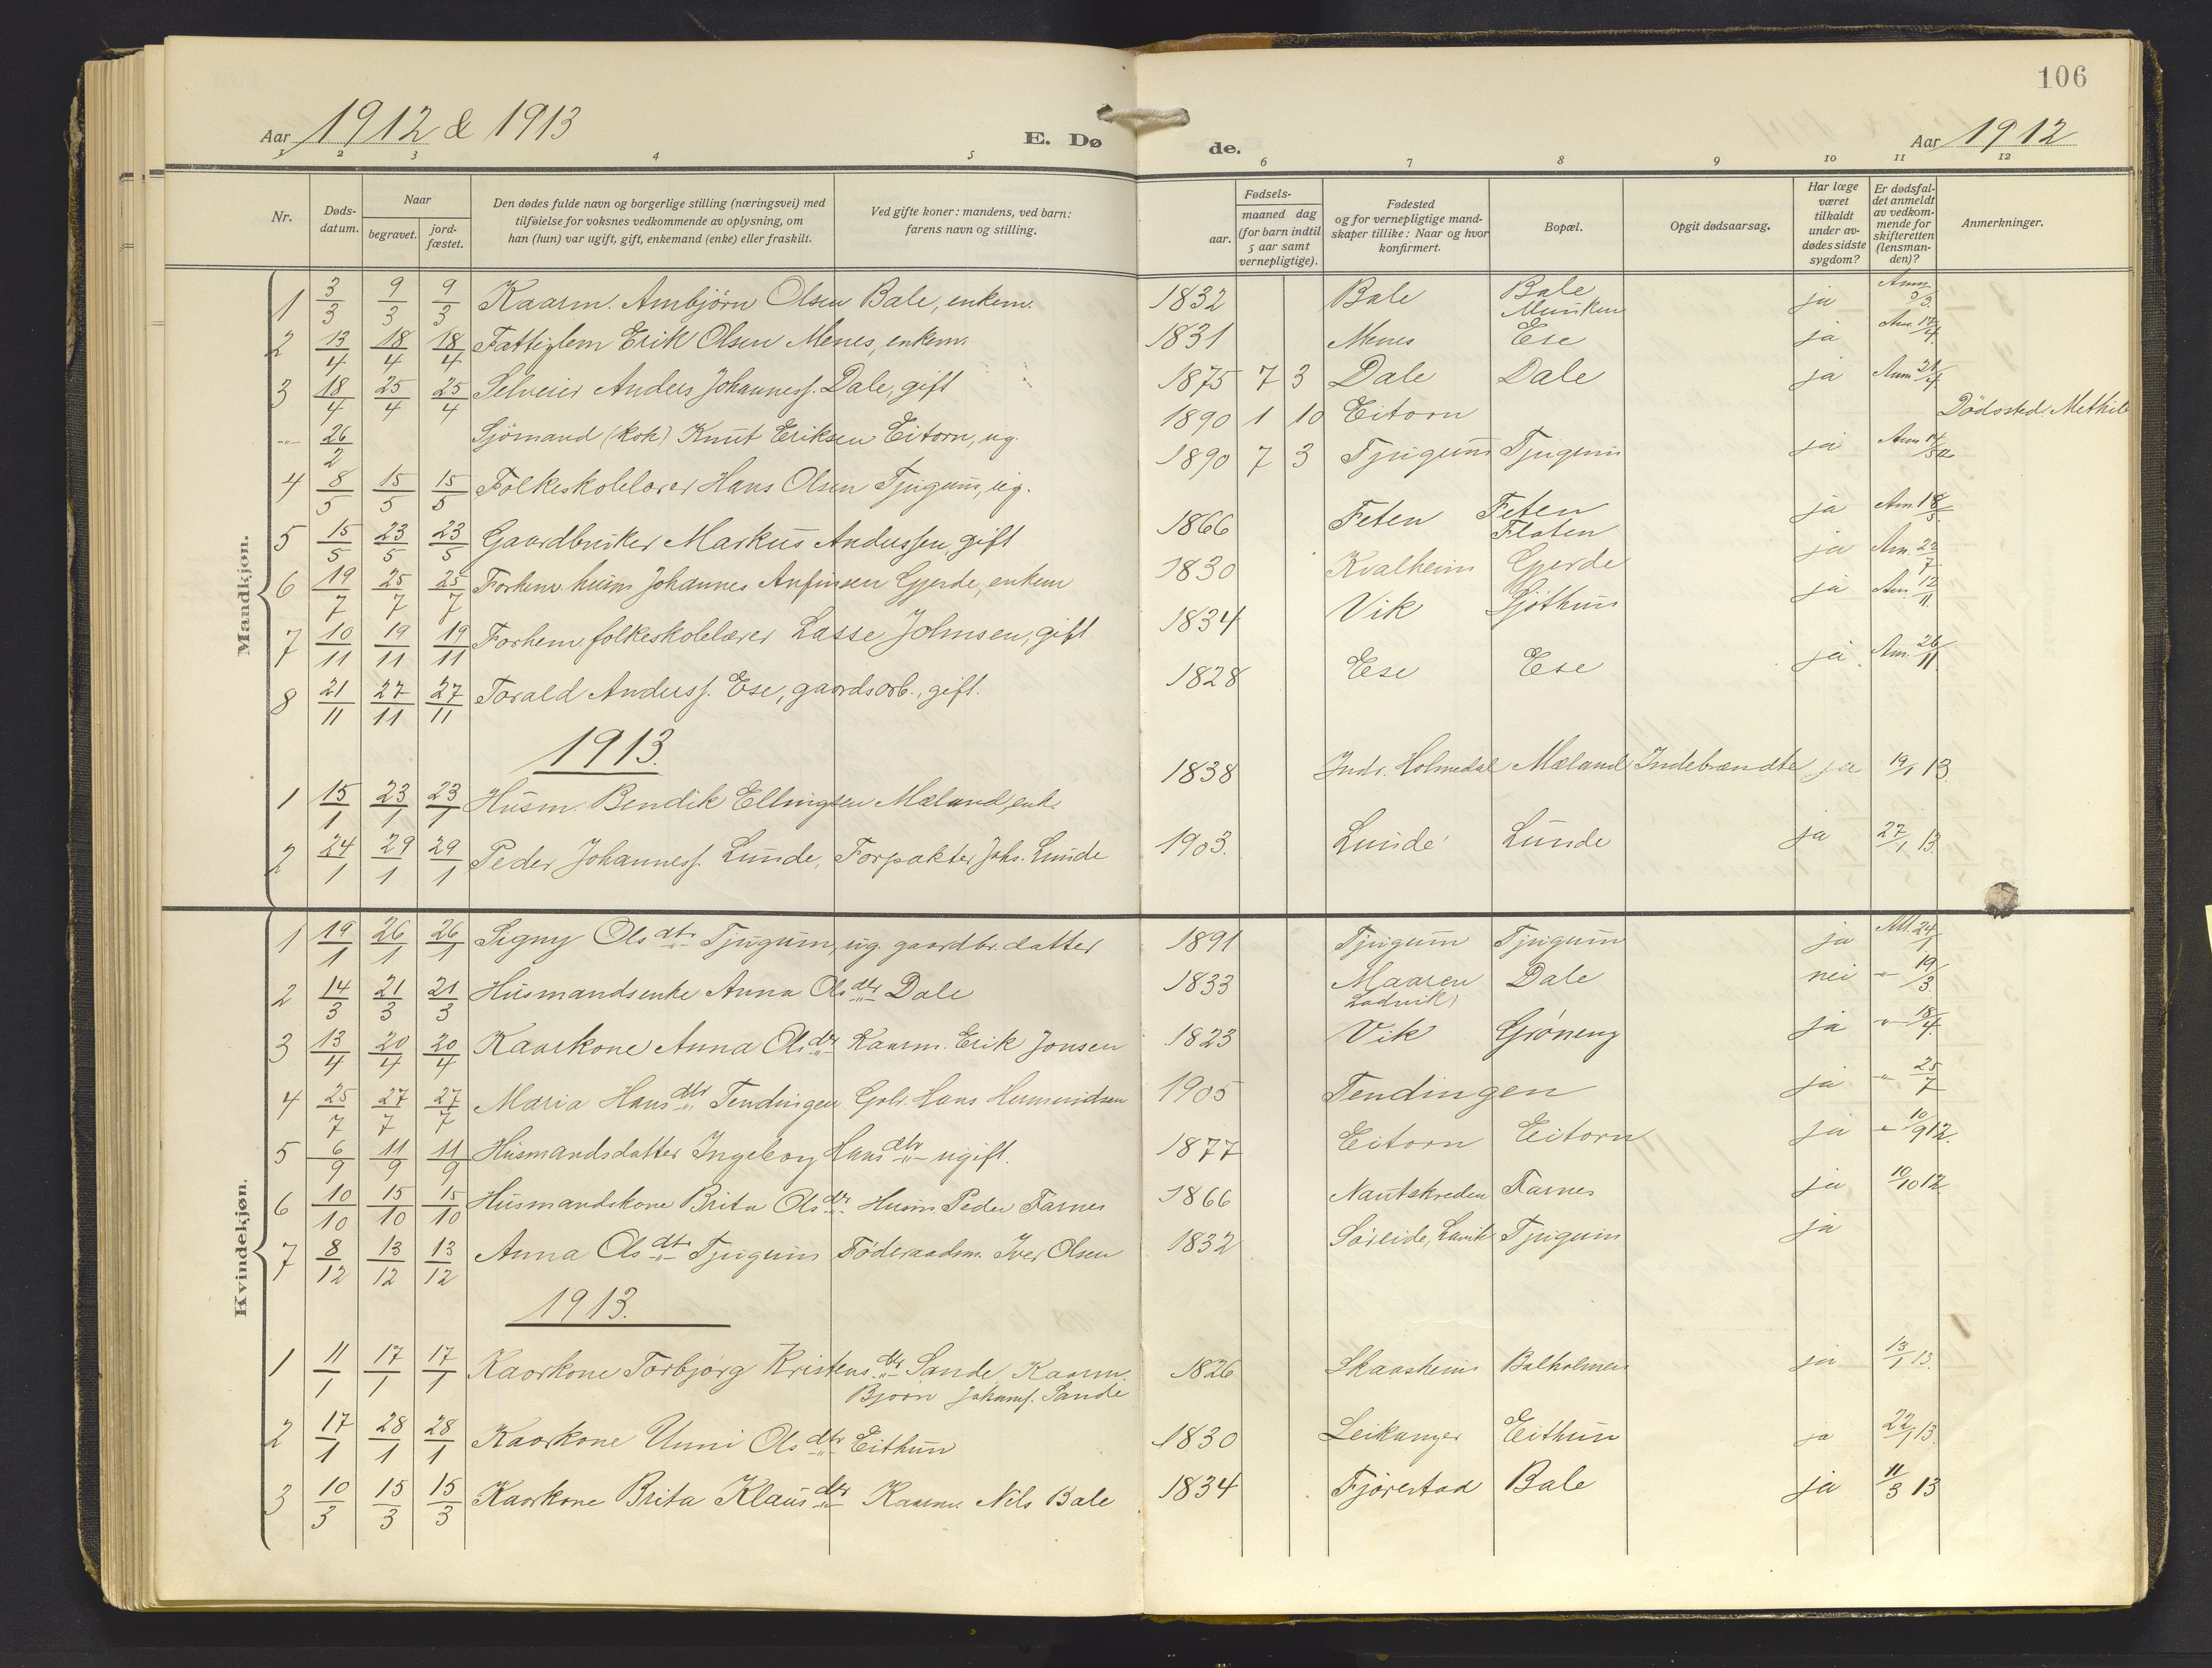 106
Aar 1912 & 1913
E. Dø
de.
Aar 1912
1 2 3 4 5 6 7 8 9 10 11 12
Nr.
Døds-
datum.
Naar
begravet.
jord-
fæstet.
Den dødes fulde navn og borgerlige stilling (næringsvei) med
tilføielse for voksnes vedkommende av oplysning, om
han (hun) var ugift, gift, enkemand (enke) eller fraskilt.
Ved gifte koner: mandens, ved barn:
farens navn og stilling.
Fødsels-
aar.
maaned dag
(for barn indtil
5 aar samt
vernepligtige).
Fødested
og for vernepligtige mand-
skaper tillike: Naar og hvor
konfirmert.
Bopæl.
Opgit dødsaarsag.
Har læge
været
tilkaldt
under av-
dødes sidste
sygdom?
Er dødsfal-
det anmeldt
av vedkom-
mende for
skifteretten
(lensman-
den)?
Anmerkninger.
Mandkjøn.
1 3/3 9/3 9/3 Kaarm. Ambjörn Olsen Bale, enkem. 1832 Bale Bale Munken ja Anm. 5/3
2 13/4 18/4 18/4 Fattiglem Erik Olsen Menes, enkem. 1831 Menes Ese ja Anm. 17/4
3 18/4 25/4 25/4 Selveier Anders Johanness. Dale, gift 1875 7 3 Dale Dale ja Anm 21/4
-"- 26/2 Sjömand (kok) Knut Eriksen Eitorn, ug. 1890 1 10 Eitorn Dödssted: Methil
4 8/5 15/5 15/5 Folkeskolelærer Hans Olsen Tjugum, ug. 1890 7 3 Tjugum Tjugum ja Anm 14/5
5 15/5 23/5 23/5 Gaardbruker Markus Anderssen, gift 1866 Feten Feten Floten ja Anm. 18/5
6 19/7 25/7 25/7 Forhenv. husm Johannes Anfinsen Gjerde, enkem 1830 Kvalheim Gjerde ja Anm. 22/7
7 10/11 19/11 19/11 Forhenv. folkeskolelærer Lasse Johnsen, gift 1834 Vik Sjöthun ja Anm 12/11
8 21/11 27/11 27/11 Torald Anderss. Ese, gaardsarb., gift. 1828 Ese Ese ja Anm. 26/11
1913.
1 15/1 23/1 23/1 Husm. Bendik Ellingsen Mæland, enk. 1838 Indr. Holmedal Mæland Indebrændte ja 19/1 13.
2 24/1 29/1 29/1 Peder Johanness. Lunde, Forpakter Johs. Lunde 1903. Lunde Lunde ja 27/1 13
Kvindekjøn.
1 19/1 26/1 26/1 Signy Olsdtr Tjugum, ug. gaardbr. datter 1891 Tjugum Tjugum ja 24/1
2 14/3 21/3 21/3 Husmandsenke Anna Olsdtr Dale 1833 Maaren Ladvik) Dale nei -"- 19/3
3 13/4 20/4 20/4 Kaarkone Anna Olsdtr Kaarm. Erik Jonsen 1823 Vik Gröneng ja -"- 18/4
4 25/7 27/7 27/7 Maria Hansdtr Tendingen Gbr. Hans Hermundsen 1905 Tendingen ja -"- 25/7
5 6/9 11/9 11/9 Husmandsdatter Ingeborg Hansdtr ugift. 1877 Eitorn Eitorn ja -"- 10/9 12.
6 10/10 15/10 15/10 Husmandskone Brita Olsdtr. Husm. Peder Farnes 1866 Nautskreden Farnes ja 10/10 12
7 8/12 13/12 13/12 Anna Olsdtr Tjugum Föderaadsm. Iver Olsen 1832 Söreide, Lavik Tjugum ja
1913.
1 11/1 17/1 17/1 Kaarkone Torbjörg Kristensdtr Sande Kaarm. Björn Johanns. Sande 1826 Skaasheim Balholmen ja 13/1 13.
2 17/1 28/1 28/1 Kaarkone Unni Olsdtr Eithun 1830 Leikanger Eithun ja 22/1 13.
3 10/3 15/3 15/3 Kaarkone Brita Klausdtr Kaarm. Nils Bale 1834 Fjörestad Bale ja 11/3 13